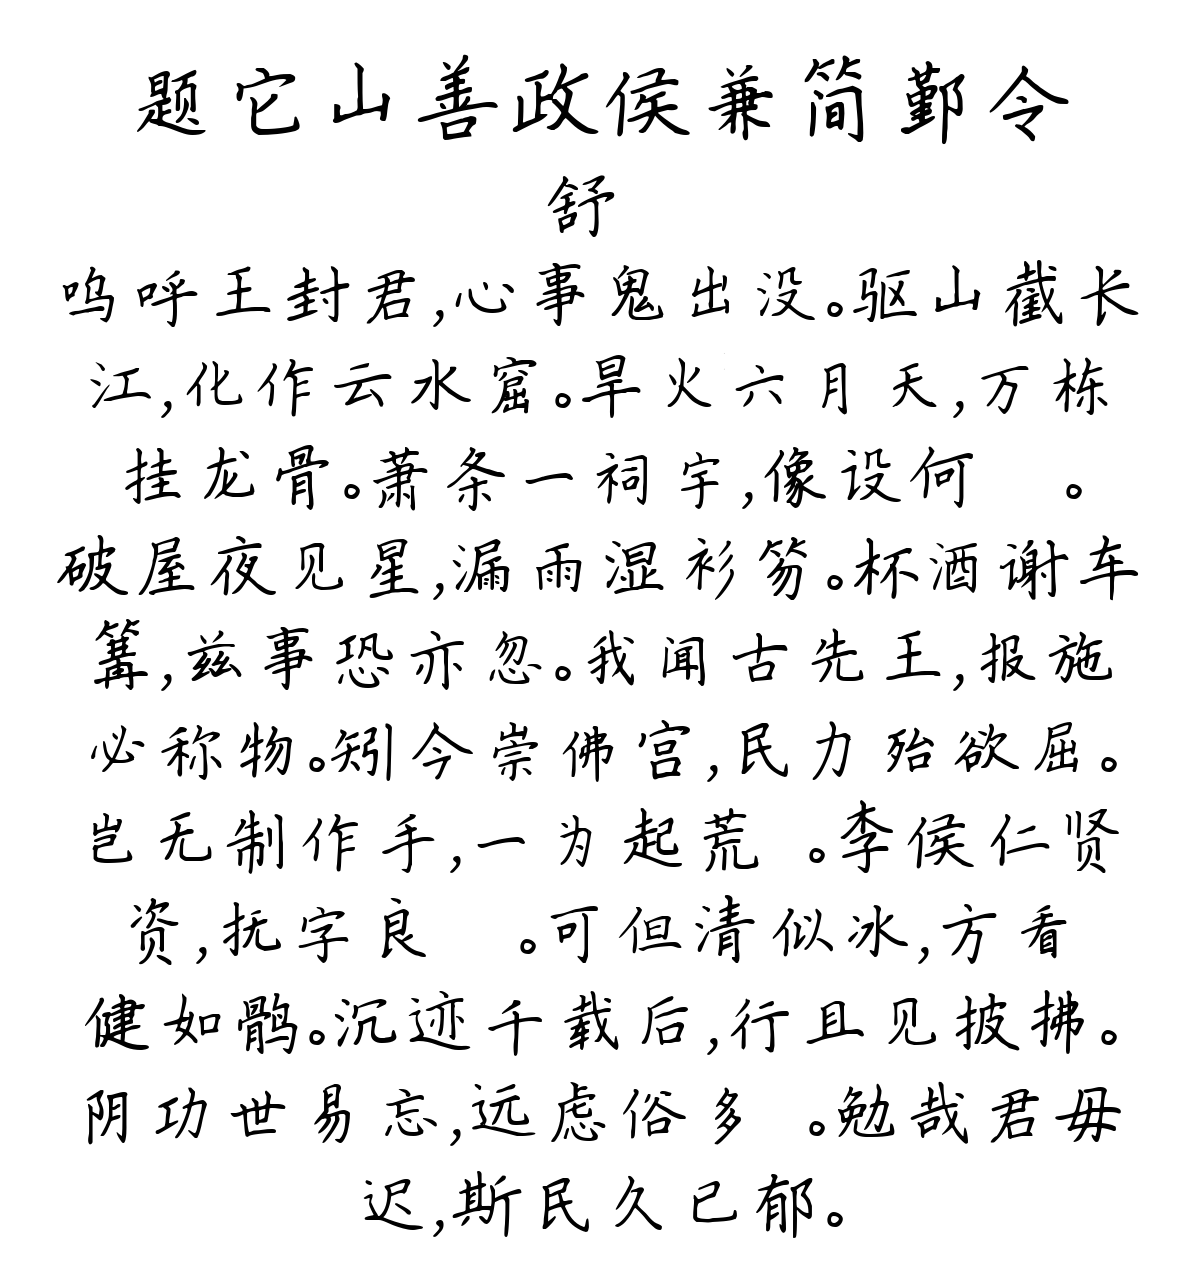 题它山善政侯兼简鄞令
舒
呜呼王封君,心事鬼出没。驱山截长
江,化作云水窟。旱火六月天,万栋
挂龙骨。萧条一祠宇,像设何 。
破屋夜见星,漏雨湿衫笏。杯酒谢车
篝,兹事恐亦忽。我闻古先王,报施
必称物。矧今崇佛宫,民力殆欲屈。
岂无制作手,一为起荒 。李侯仁贤
资,抚字良 。可但清似冰,方看
健如鹘。沉迹千载后,行且见披拂。
阴功世易忘,远虑俗多 。勉哉君毋
迟,斯民久已郁。